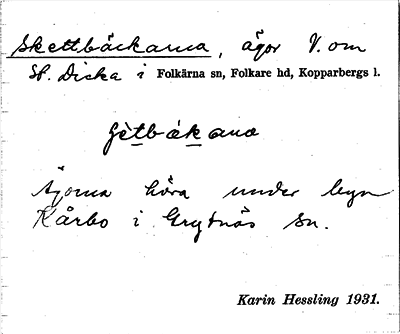 Skettbäckarna, ägor V. om
St. Dicka i Folkärna sn, Folkare hd, Kopparbergs l.
jètbákana
Ägorna höra under byn
Kårbo i Grytnäs sn.
Karin Hessling 1931.